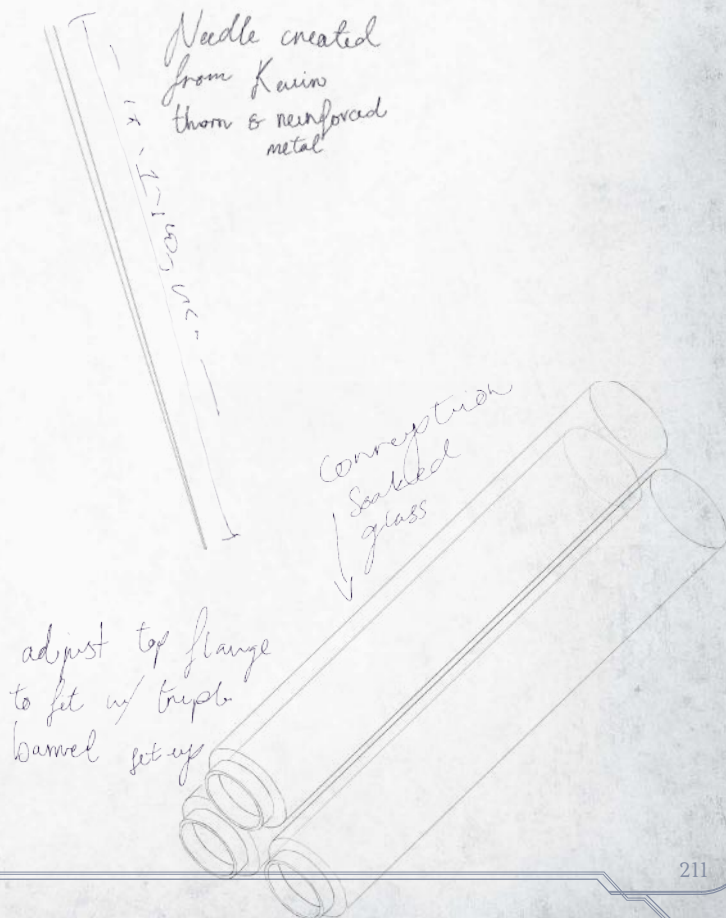 Needle created
from
thorn & reinforced
metal
corruption
Soaked
glass
adjust top flange
to fit w/ triple
barrel set-up
211